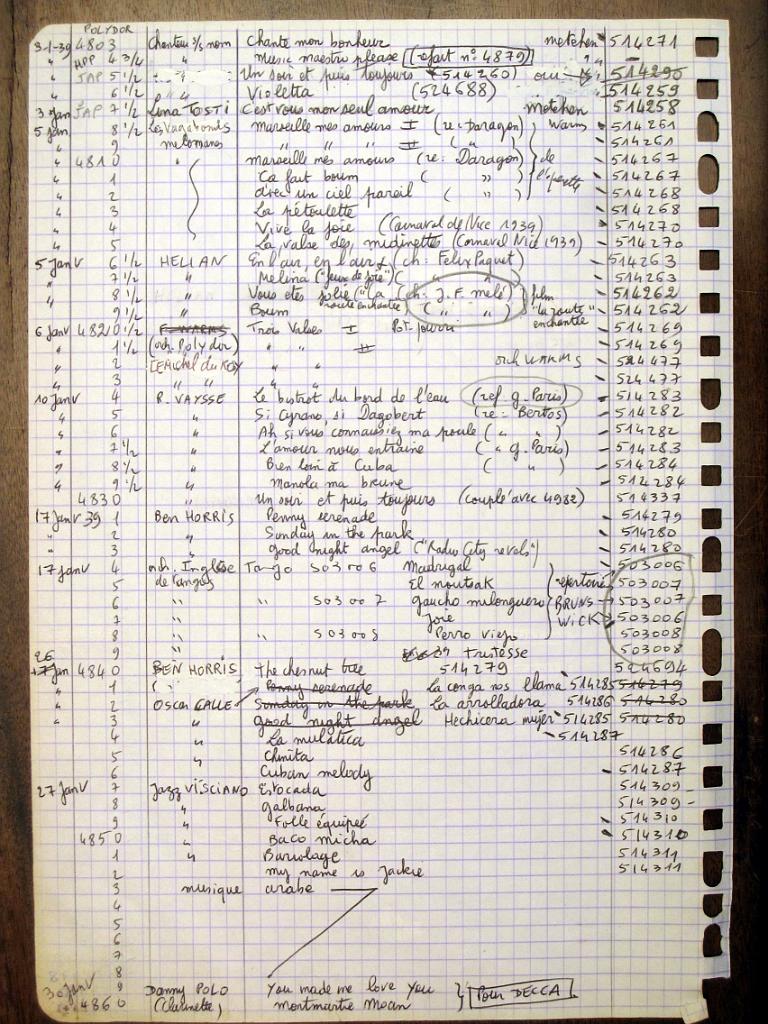 POLYDOR
3-1-39 4803 Chanteur s/s nom Chante mon bonheur metehen 514271
" HPP 4 3/4 " music maestro please (refait n° 4879) "
" JAP 5 1/2 " Un soir et puis toujours (514260) oui 514290
" 6 1/2 " Violetta (524688) 514259
3 Jan JAP 7 1/2 Lina TOSTI C'est vous mon seul amour Metehen 514258
5 Jan 8 1/2 Les Vagabonds Marseille mes amours I (re: Daragon) Warms 514261
" 9 melomanes " " " II ( " ) 514261
" 4810 " Marseille mes amours (re: Daragon) de 514267
" 1 Ca fait boum ( " ) l'operette 514267
" 2 Avec un ciel pareil ( " ) 514268
" 3 La petoulette 514268
" 4 Vive la joie (Carnaval de Nice 1939) 514270
" 5 La valse des midinettes (Carnaval Nice 1939) 514270
5 JanV 6 1/2 HELIAN En l'air, en l'air (ch: Felix Paquet) 514263
" 7 1/2 " Melina ("feux de joie") ( " " ) 514263
" 8 1/2 " Vous etes jolie ("La route enchantée") (ch: J.F. melé) film 514262
" 9 1/2 " Boum ( " " ) "la route enchantée" 514262
6 Janv 4820 1/2 F. WARMS Trois Valses I Pot-pourri 514269
" 1 1/2 (orch. Polydor) " " II 514269
" 2 [E Michel du ROY " " orch WARMS 524477
" 3 " " " " 524477
10 Janv 4 R. VAYSSE Le bistrot du bord de l'eau (ref g. Paris) 514283
" 5 " Si Cyrano, si Dagobert (re: Bertos) 514282
" 6 " Ah si vous connaissiez ma poule ( " " ) 514282
" 7 1/2 " L'amour nous entraine ( " g. Paris) 514283
" 8 1/2 " Bien loin à Cuba ( " ) 514284
" 9 1/2 " Manola ma brune 514284
4830 " Un soir et puis toujours (couplé avec 4982) 514337
17 Janv 39 1 Ben HORRIS Penny serenade 514279
" 2 " Sunday in the park 514280
" 3 " Good night angel ("Radio City revels") 514280
17 Janv 4 orch. Inglese Tango 503006 Madrigal 503006
5 de Tangos El moutiak repertoire 503007
6 " " 503007 Gaucho milonguero BRUNS- 503007
7 " Joie WICK 503006
8 " 503008 Perro viejo 503008
9 " Tristesse 503008
26 Jan 4840 BEN HORRIS The chesnut tree 514279 524694
" 1 " Penny serenade La conga nos llama 514285 514279
" 2 Oscar CALLE Sunday in the park La arrolladora 514286 514280
" 3 " good night angel Hechicera mujer 514285 514280
4 " La mulatica 514287
5 " Chinita 514286
6 Cuban melody 514287
27 Janv 7 Jazz VISCIANO Estocada 514309
8 " Galbana 514309
9 " Folle équipée 514310
4850 " Baco micha 514310
1 " Bariolage 514311
2 my name is Jackie 514311
3 musique arabe
4
5
6
7
8
30 Janv 9 Danny POLO You made me love you Pour DECCA
4860 (Clarinette) Montmartre Moan